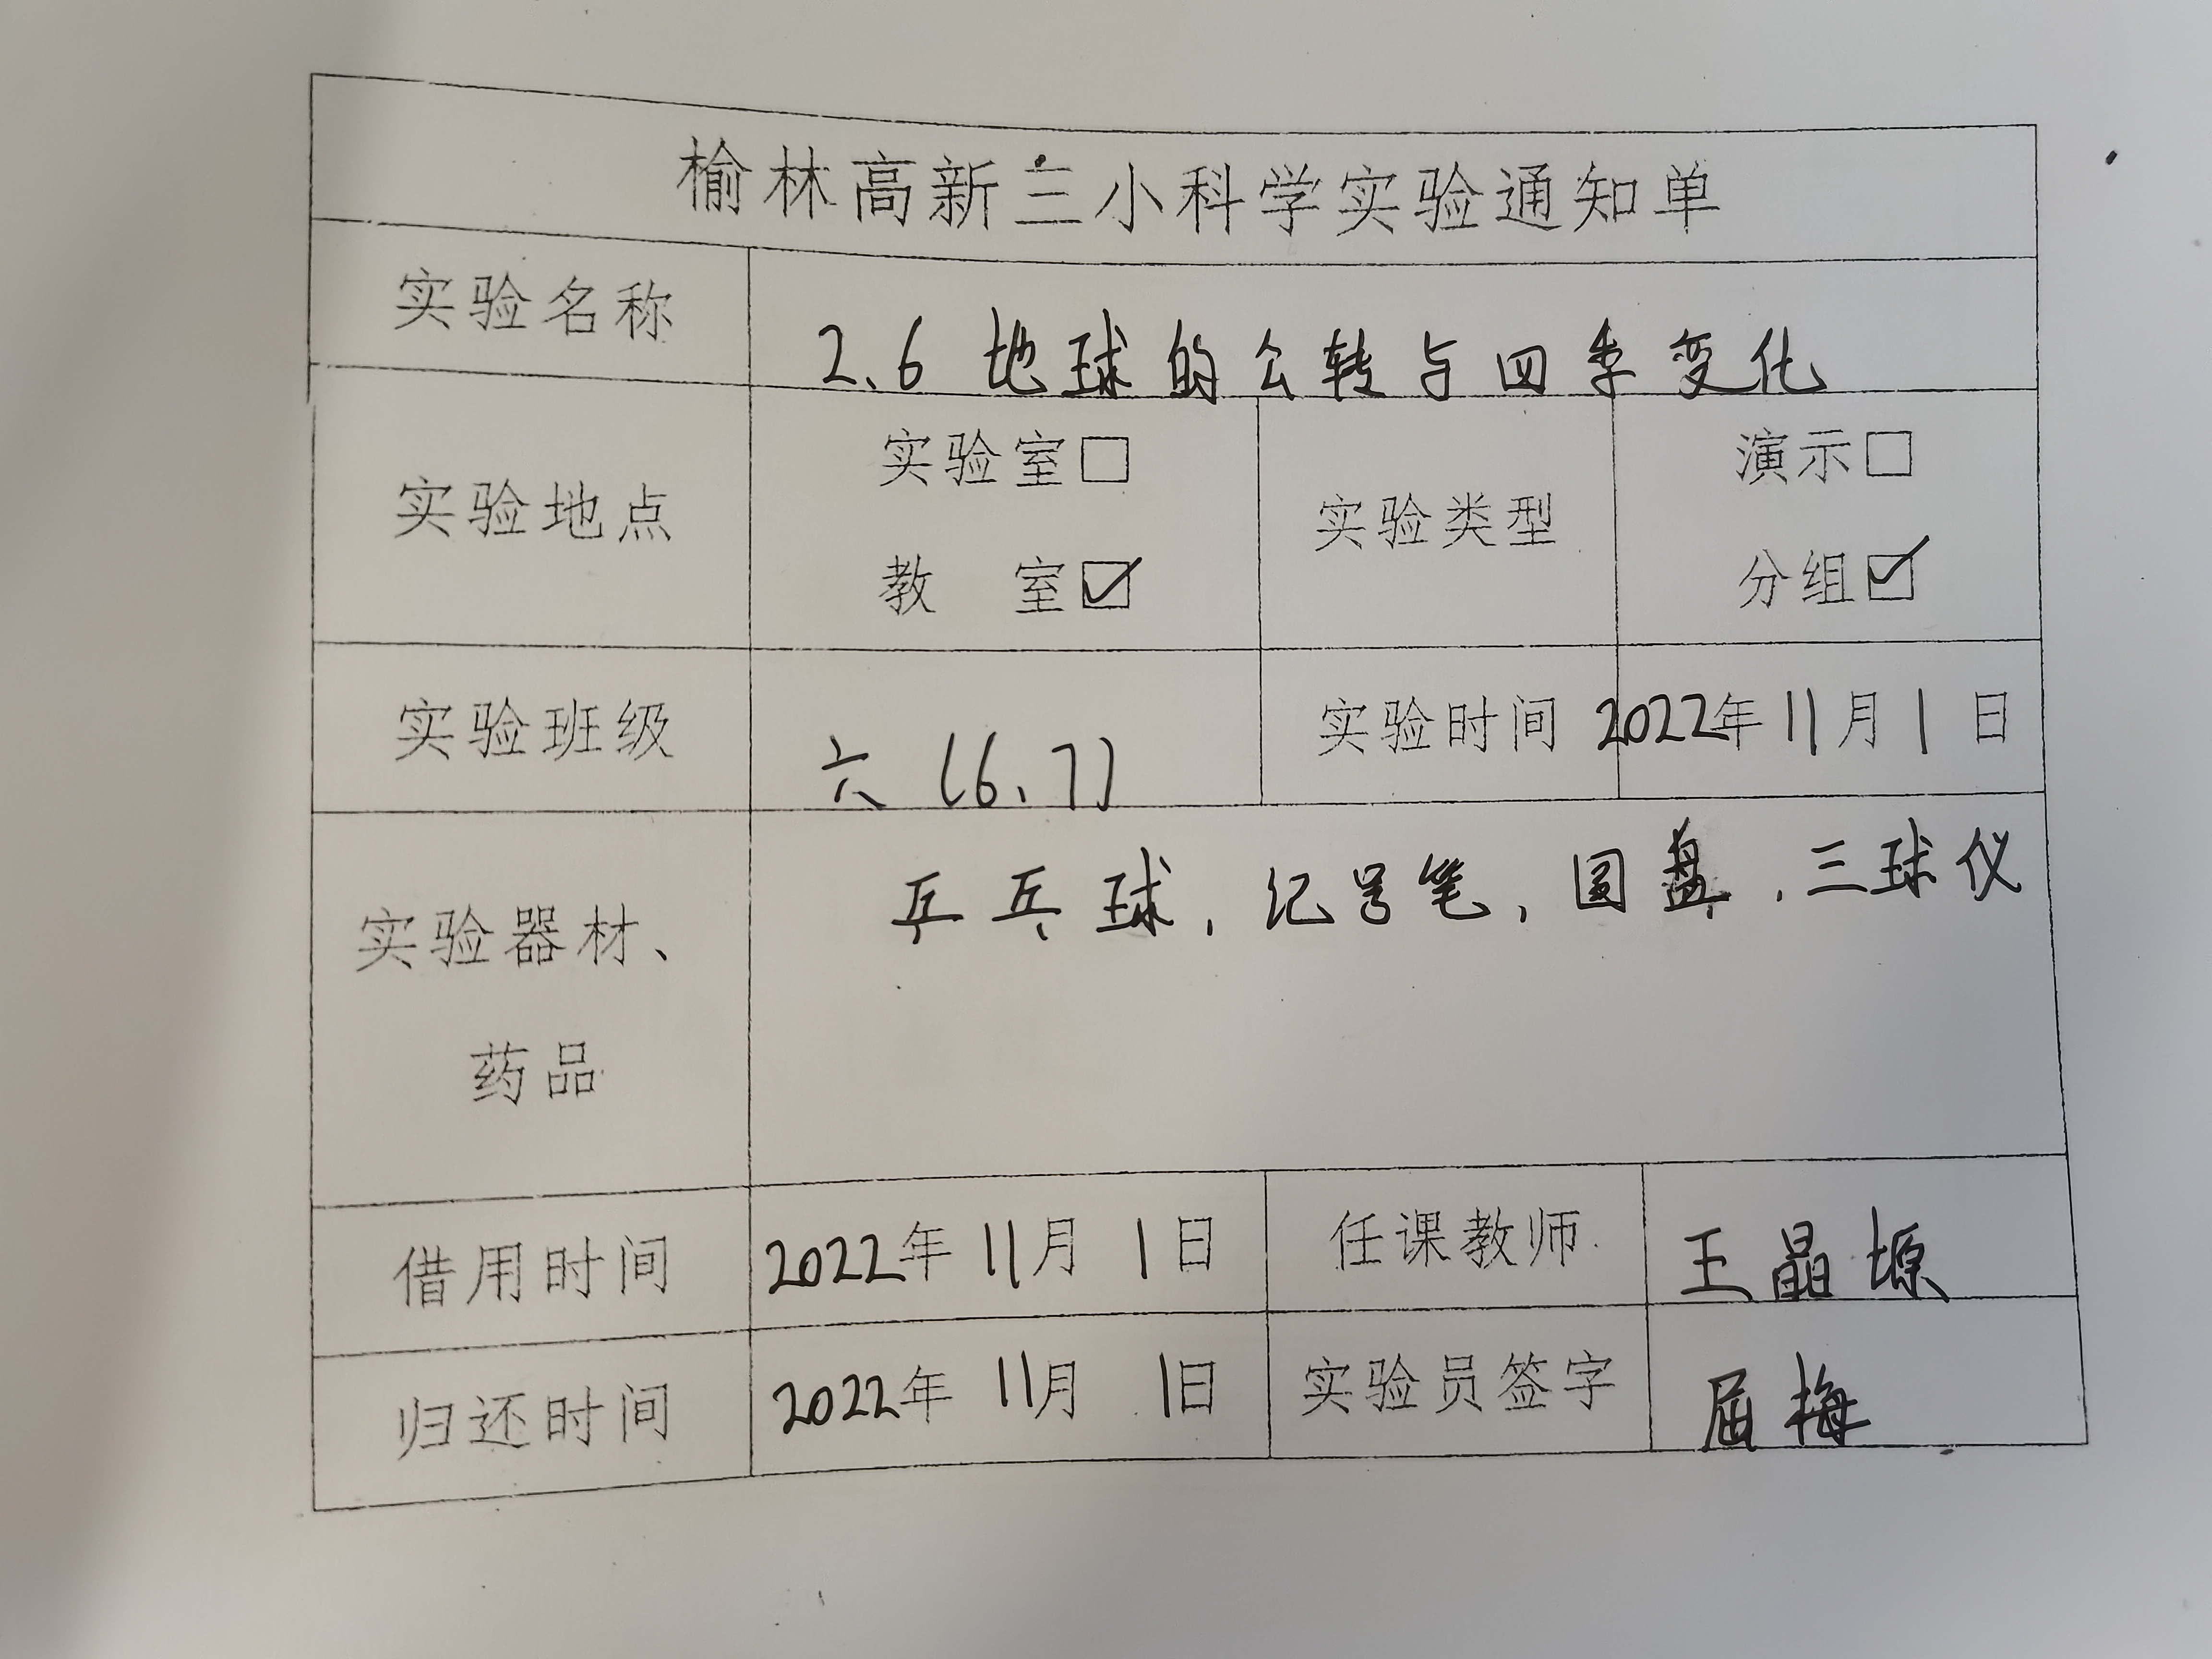 榆林高新三小科学实验通知单
实验名称 2.6 地球的公转与四季变化
实验地点 实验室□ 教 室☑ 实验类型 演示□ 分组☑
实验班级 六(6、7) 实验时间 2022年11月1日
实验器材、药品 乒乓球,记号笔,圆盘,三球仪
借用时间 2022年11月1日 任课教师 王晶塬
归还时间 2022年11月1日 实验员签字 屈梅